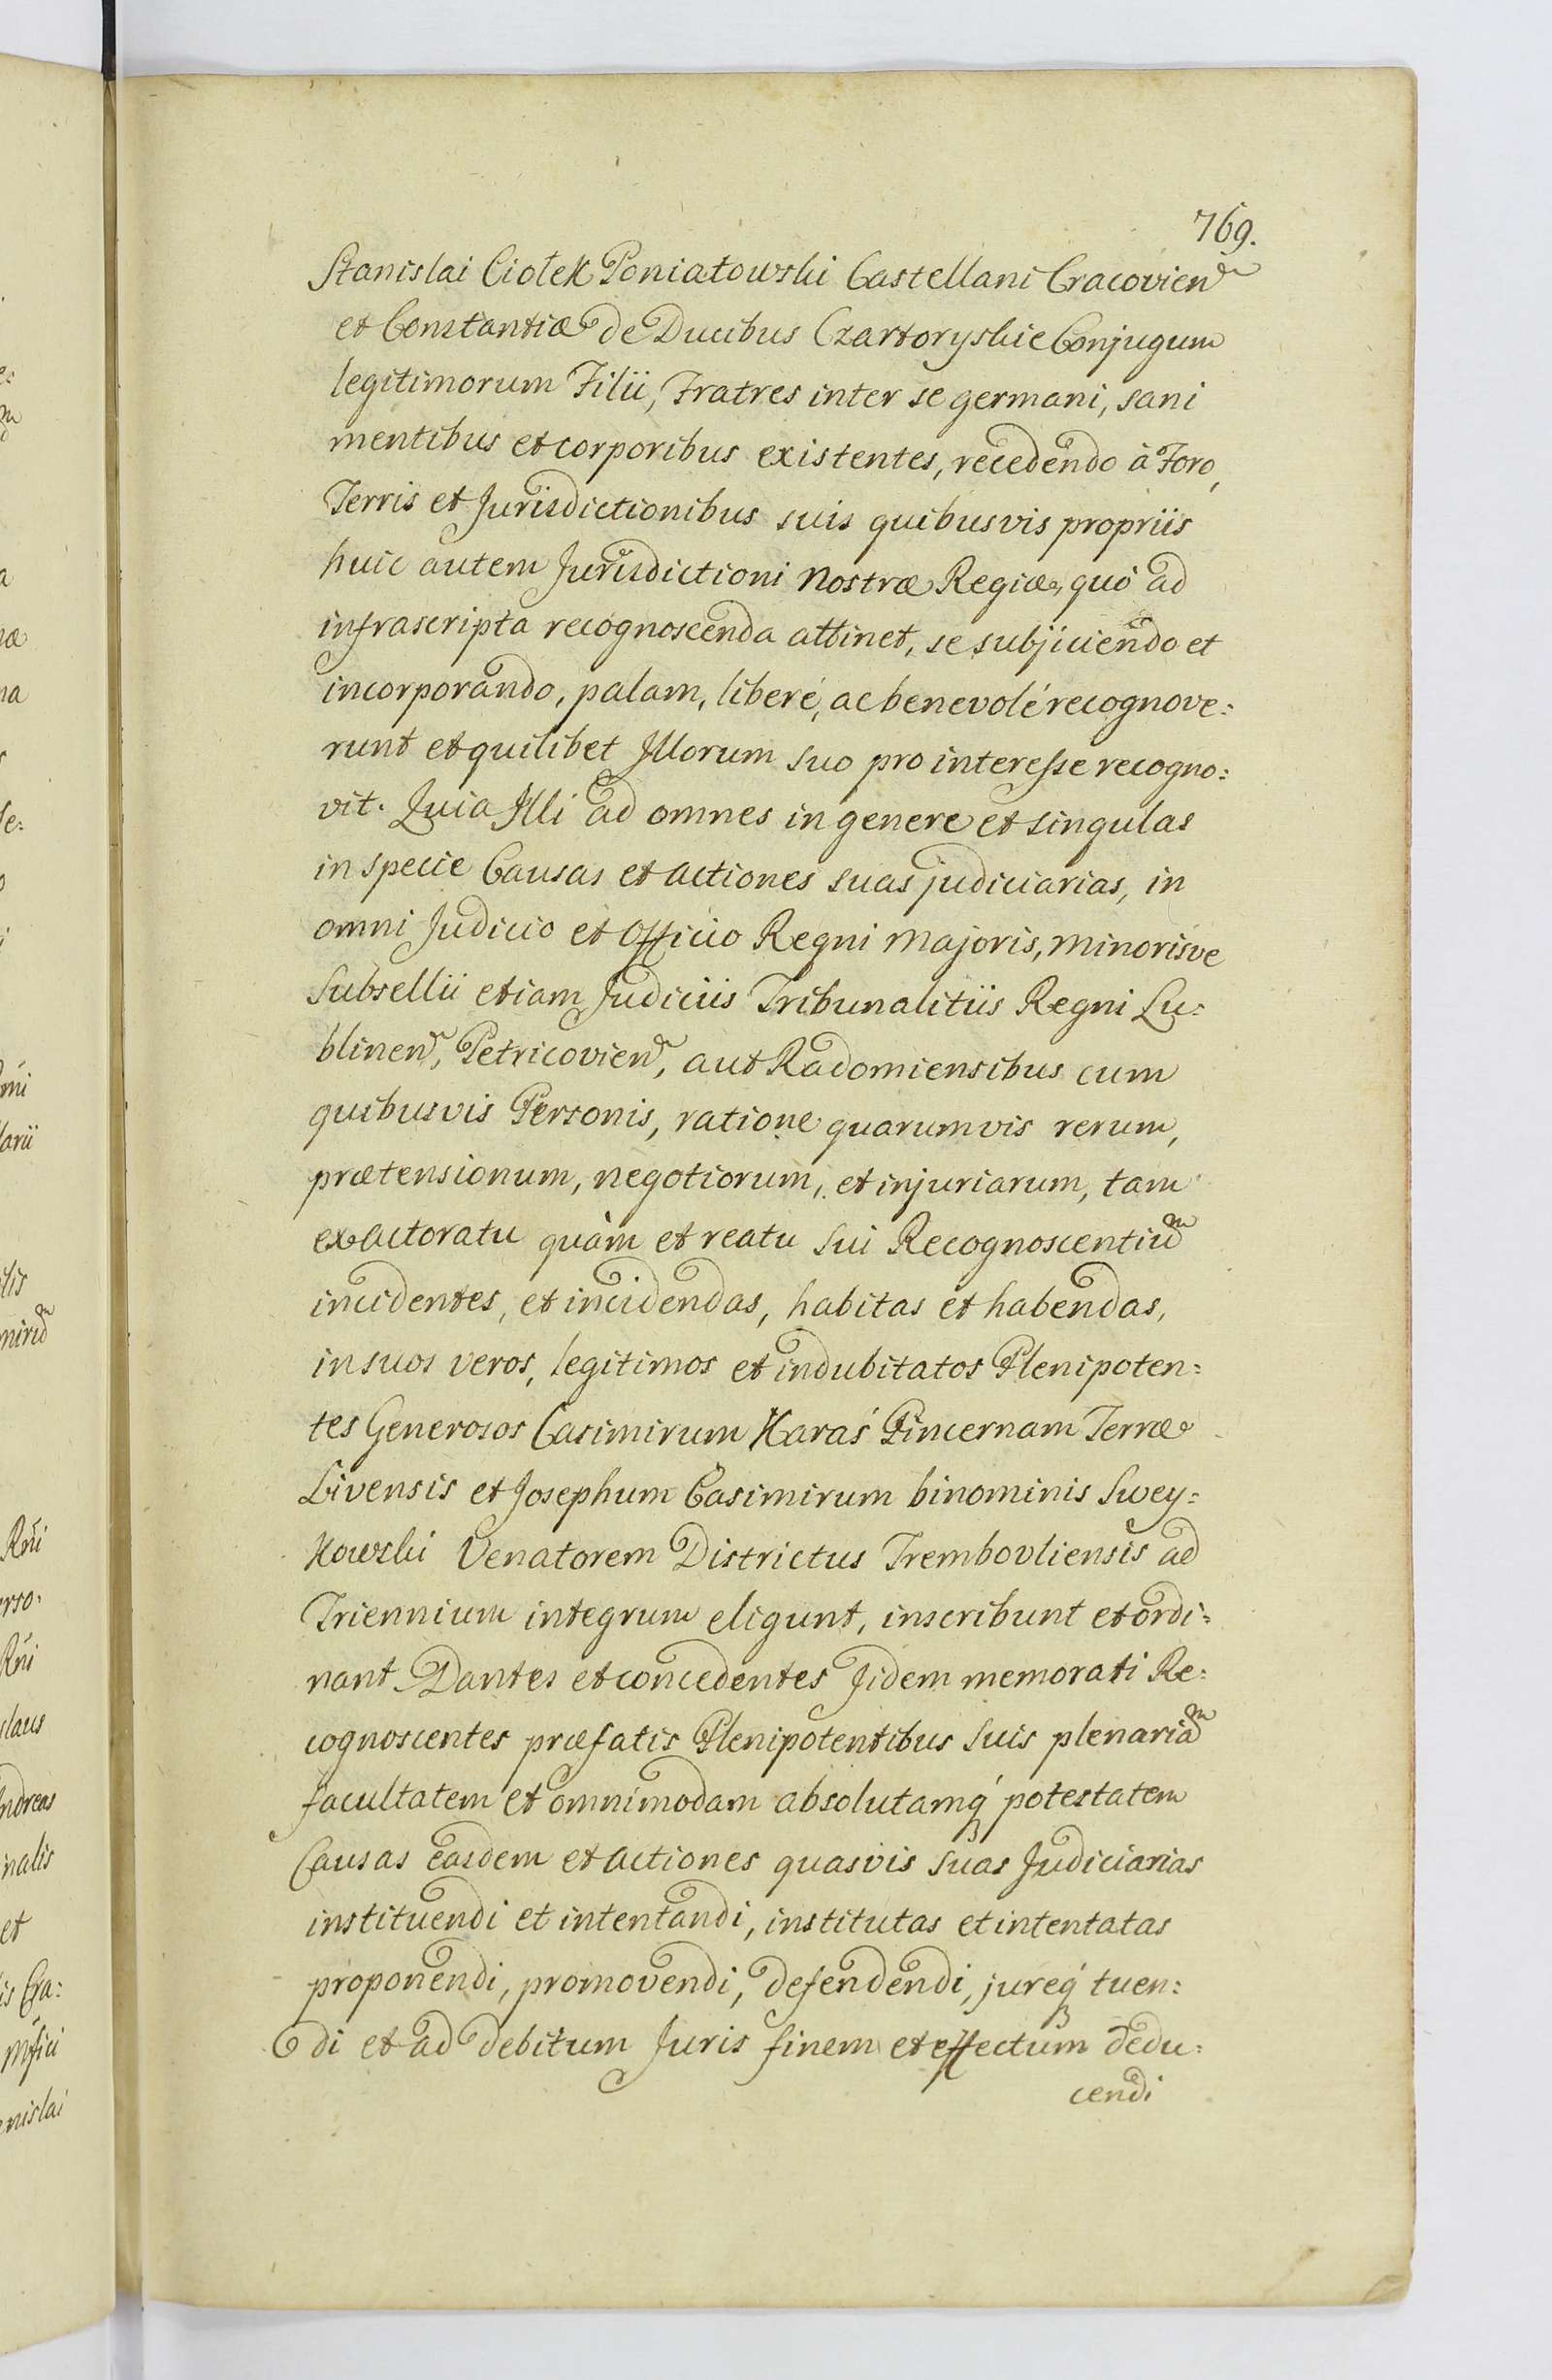 769.
Stanislai Ciołek Poniatowski Castellani Cracovien̄
et Constantiæ de Ducibus Czartoryskie Conjugum
legitimorum Filii, Fratres inter se germani, sani
mentibus et corporibus existentes, recedendo à Foro,
Terris et Jurisdictionibus suis quibusvis propriis
huic autem Jurisdictioni Nostræ Regiæ, quò ad
infrascripta recognoscenda attinet, se subjiciendo et
incorporando, palam, liberé, ac benevolé recognove:
runt et quilibet Illorum suo pro interesse recogno:
vit. Quia Illi ad omnes in genere et singulas
in specie Causas et actiones suas judiciarias, in
omni Judicio et Officio Regni Majoris, Minorisve
Subsellii etiam Judiciis Tribunalitiis Regni Lu:
blinen̄, Petricovien̄, aut Radomiensibus cum
quibusvis Personis, ratione quarumvis rerum,
prætensionum, negotiorum, et injuriarum, tam
ex actoratu quàm et reatu sui Recognoscentiu͂m
incidentes, et incidendas, habitas et habendas,
in suos veros, legitimos et indubitatos Plenipoten:
tes Generosos Casimirum Karaś Pincernam Terræ
Livensis et Josephum Casimirum binominis Swey:
kowski Venatorem Districtus Trembovliensis ad
Triennium integrum eligunt, inscribunt et ordi:
nant. Dantes et concedentes Jidem memorati Re:
cognoscentes præfatis Plenipotentibus suis plenariam
facultatem et omnimodam absolutamq́ potestatem
Causas easdem et actiones quasvis suas Judiciarias
instituendi et intentandi, institutas et intentatas
proponendi, promovendi, defendendi, jureq́ tuen:
di et ad debitum Juris finem et effectum dedu:
cendi